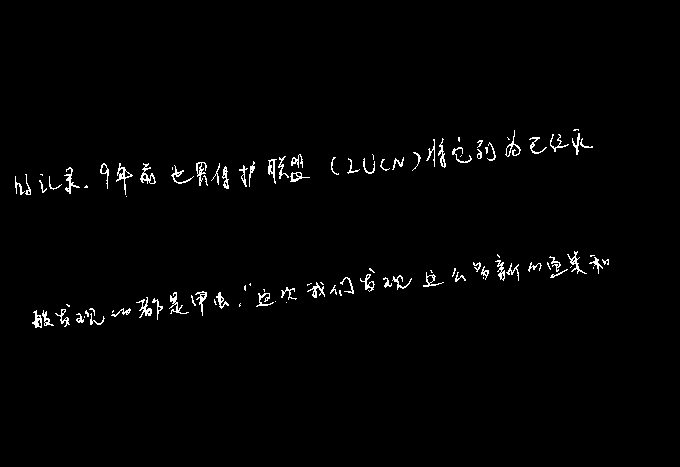 的记录.9年前世界保护联盟(IUCN)将它列为已经灭
般发现的都是甲虫,"这次我们发现这么多新的鱼类和